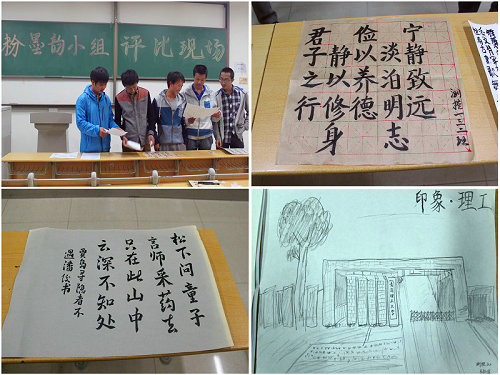 粉墨韵小组 评比现场
宁静致远
淡泊明志
俭以养德
静以修身
君子之行
测控一三二班
松下问童子
言师采药去
只在此山中
云深不知处
贾岛寻隐者不
遇
印象·理工